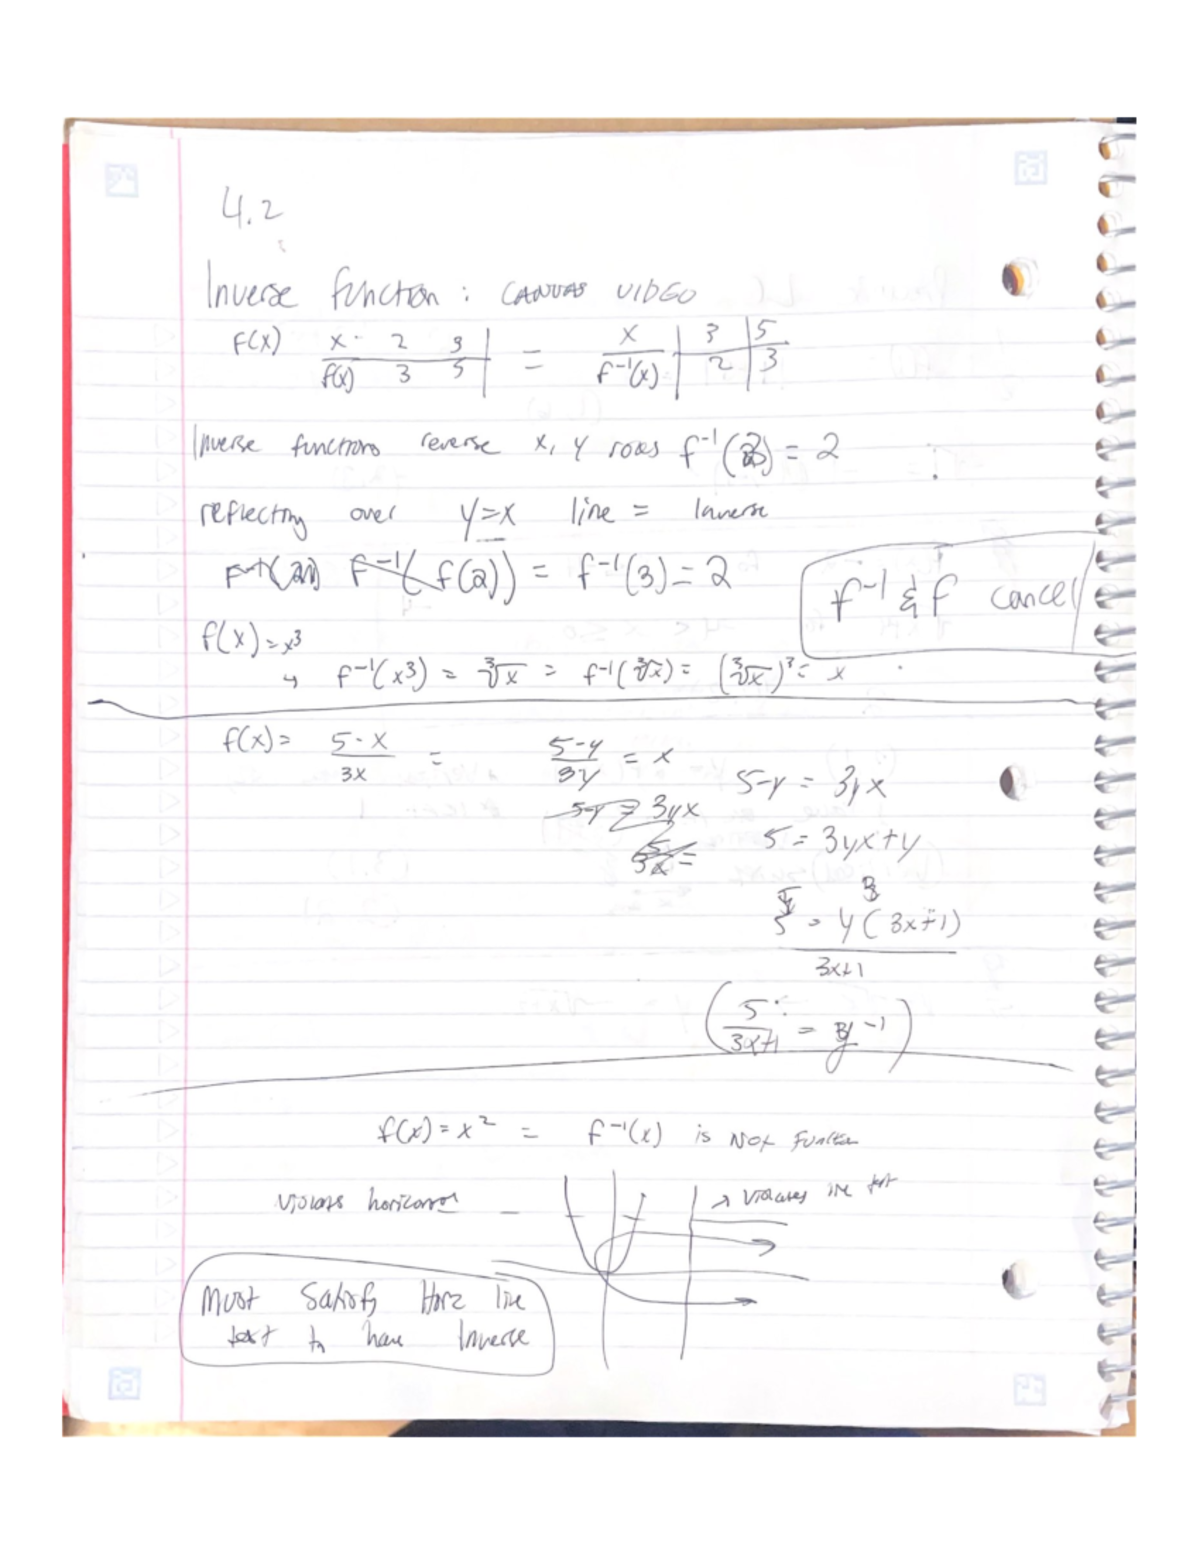 4.2
Inverse function: CANVAS VIDEO
F(x) x 2 3 = x 3 5
f(x) 3 5 f⁻¹(x) 2 3
Inverse functions reverse x, y rows f⁻¹(3) = 2
reflecting over y=x line = Inverse
f⁻¹(f(2)) = f⁻¹(3) = 2
f⁻¹ & f cancel
f(x) = x³
↳ f⁻¹(x³) = ∛x = f⁻¹(∛x) = (∛x)³ = x
f(x) = 5-x / 3x = 5-y / 3y = x
5-y = 3yx
5-y = 3yx
5 / 3x =
5 = 3yx+y
5 = y(3x+1)
3x+1
(5 / 3x+1 = y⁻¹)
f(x) = x² = f⁻¹(x) is NOT Function
Violates horizontal - → Violates line test
Must Satisfy Horz line
test to have Inverse